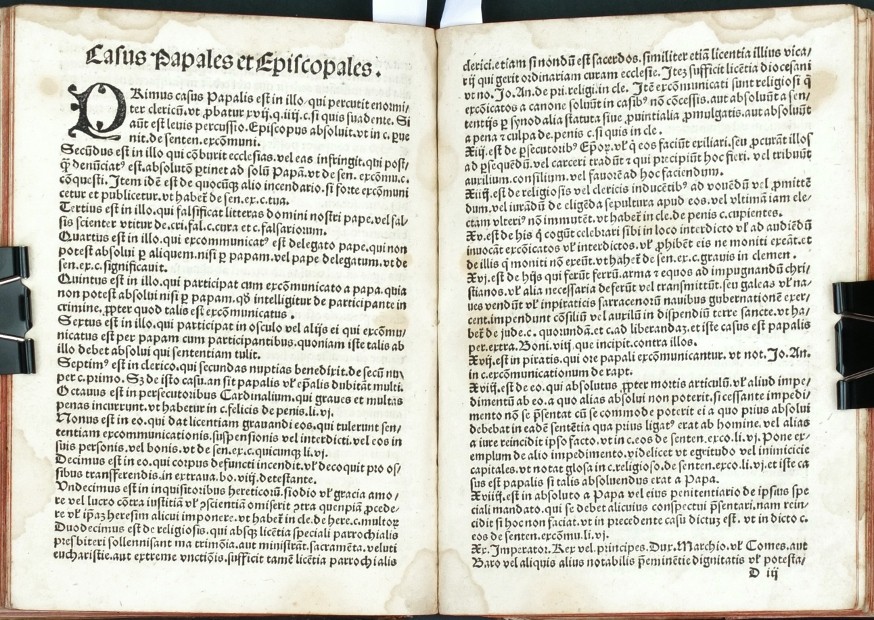 Casus Papales et Episcopales.
PRimus casus Papalis est in illo qui percutit enormi/
ter clericũ.vt ꝓbatur xvij.q.iiij.c.si quis suadente. Si
aũt est leuis percussio.Episcopus absoluit.vt in c. ꝑue
nit.de senten.excõmuni.
Secũdus est in illo qui cõburit ecclesias.vel eas infringit.qui post/
ꝗ̃ denũciatꝰ est.absolutõ ꝑtinet ad solũ Papã.vt de sen.excõmu.c.
cõquesti.Item idẽ est de quocũqꝫ alio incendario.si forte excõmuni
cetur et publicetur.vt habet̃ de sen.ex.c.tua.
Tertius est in illo.qui falsificat litteras domini nostri pape.vel fal/
sis scienter vtitur de.cri.fal.c.cura et c.falsariorum.
Quartus est in illo.qui excommunicatꝰ est delegato pape.qui non
potest absolui ꝑ aliquem.nisi ꝑ papam.vel pape delegatum.vt de
sen.ex.c.significauit.
Quintus est in illo.qui participat cum excõmunicato a papa.quia
non potest absolui nisi ꝑ papam.qđ intelligitur de participante in
crimine.ꝓpter quod talis est excõmunicatus.
Sextus est in illo.qui participat in osculo vel alijs ei qui excõmu/
nicatus est per papam cum participantibus.quoniam iste talis ab
illo debet absolui qui sententiam tulit.
Septimꝰ est in clerico.qui secundas nuptias benedixit.de secũ nu/
per c.primo. Sꝫ de isto casu.an sit papalis vł ep̃alis dubitãt multi.
Octauus est in persecutoribus Cardinalium.qui graues et multas
penas incurrunt.vt habetur in c.felicis de penis.li.vj.
Nonus est in eo.qui dat licentiam grauandi eos.qui tulerunt sen/
tentiam excommunicationis.suspensionis vel interdicti.vel eos in
suis personis.vel bonis.vt de sen.ex.c.quicunqꝫ li.vj.
Decimus est in eo.qui corpus defuncti incendit.vł decoquit pro os/
sibus transferendis.in extraua.bo.viij.detestante.
Vndecimus est in inquisitoribus hereticorũ.si odio vł gracia amo/
re vel lucro cõtra iustitiã vł ꝯscientiã omiserit ꝯtra quenpiã ꝓcede/
re vł ip̃aꝫ heresim alicui imponere.vt habet̃ in cle.de here.c.multoꝝ
Duodecimus est de religiosis.qui absqꝫ licẽtia speciali parrochialis
presbiteri sollennisant ma trimõia.aut ministrãt.sacramẽta.veluti
eucharistie.aut extreme vnctiõis.sufficit tamẽ licẽtia parrochialis
clerici.etiam si nondũ est sacerdos.similiter etiã licentia illius vica/
rij qui gerit ordinariam curam ecclesie. Iteꝫ sufficit licẽtia diocesani
vt no. Jo.An.de pri.religi.in cle. Itẽ excõmunicati sunt religiosi ꝗ
excõicatos a canone soluũt in casibꝰ nõ cõcessis.aut absoluũt a sen/
tentijs ꝑ synodalia statuta siue ꝓuintialia ꝓmulgatis.aut absoluũt
a pena ⁊ culpa de.penis c.si quis in cle.
Xiij.est de ꝑsecutoribꝰ Ep̃oꝝ.vł ꝗ eos faciũt exiliari.seu ꝓcurãt illos
ad ꝑsequẽdũ.vel carceri tradũt ⁊ qui precipiũt hoc fieri. vel tribuũt
auxilium.consilium.vel fauorẽ ad hoc faciendum.
Xiiij.est de religiosis vel clericis inducẽtibꝰ ad vouẽdũ vel ꝓmittẽ
dum.vel iurãdũ de eligẽda sepultura apud eos.vel vltimã iam ele/
ctam vlteriꝰ nõ immutẽt.vt habet̃ in cle.de penis c.cupientes.
Xv.est de his ꝗ cogũt celebrari sibi in loco interdicto vł ad audiẽdũ
inuocãt excõicatos vł interdictos.vł ꝓhibẽt eis ne moniti exeãt.et
de illis ꝗ moniti nõ exeũt.vt habet̃ de sen.ex.c.grauis in clemen.
Xvj.est de hijs qui ferũt ferrũ.arma ⁊ equos ad impugnandũ chri/
stianos.vł alia necessaria deferũt vel transmittũt.seu galeas vł na/
ues vendũt vł inpiraticis sarracenorũ nauibus gubernationẽ exer/
cent.impendunt cõsiliũ vel auxiliũ in dispendiũ terre sancte.vt ha/
bet̃ de jude.c. quorundã.et c.ad liberandaꝫ.et iste casus est papalis
per.extra.Boni.viij.que incipit.contra illos.
Xvij.est in piratis.qui ore papali excõmunicantur. vt not. Jo. An.
in c.excõmunicationum de rapt.
Xviij.est de eo.qui absolutus ꝓpter mortis articulũ.vł aliud impe/
dimentũ ab eo.a quo alias absolui non poterit.si cessante impedi/
mento nõ se p̃sentat cũ se commode poterit ei a quo prius absolui
debebat in eadẽ sentẽtia qua prius ligatꝰ erat ab homine.vel alias
a iure reincidit ipso facto.vt in c.eos de senten.exco.li.vj. Pone ex/
emplum de alio impedimento.videlicet vt egritudo vel inimicicie
capitales.vt notat glosa in c.religioso.de senten.exco.li.vj.et iste ca
sus est papalis si talis absoluendus erat a Papa.
Xviiij.est in absoluto a Papa vel eius penitentiario de ipsius spe
ciali mandato.qui se debet alicuius conspectui p̃sentari.nam rein/
cidit si hoc non faciat.vt in precedente casu dictuꝫ est. vt in dicto c.
eos de senten.excõmu.li.vj.
Xx. Imperator. Rex vel. principes. Dux. Marchio. vł Comes. aut
Baro vel aliquis alius notabilis p̃eminẽtie dignitatis vł potesta/
D iij